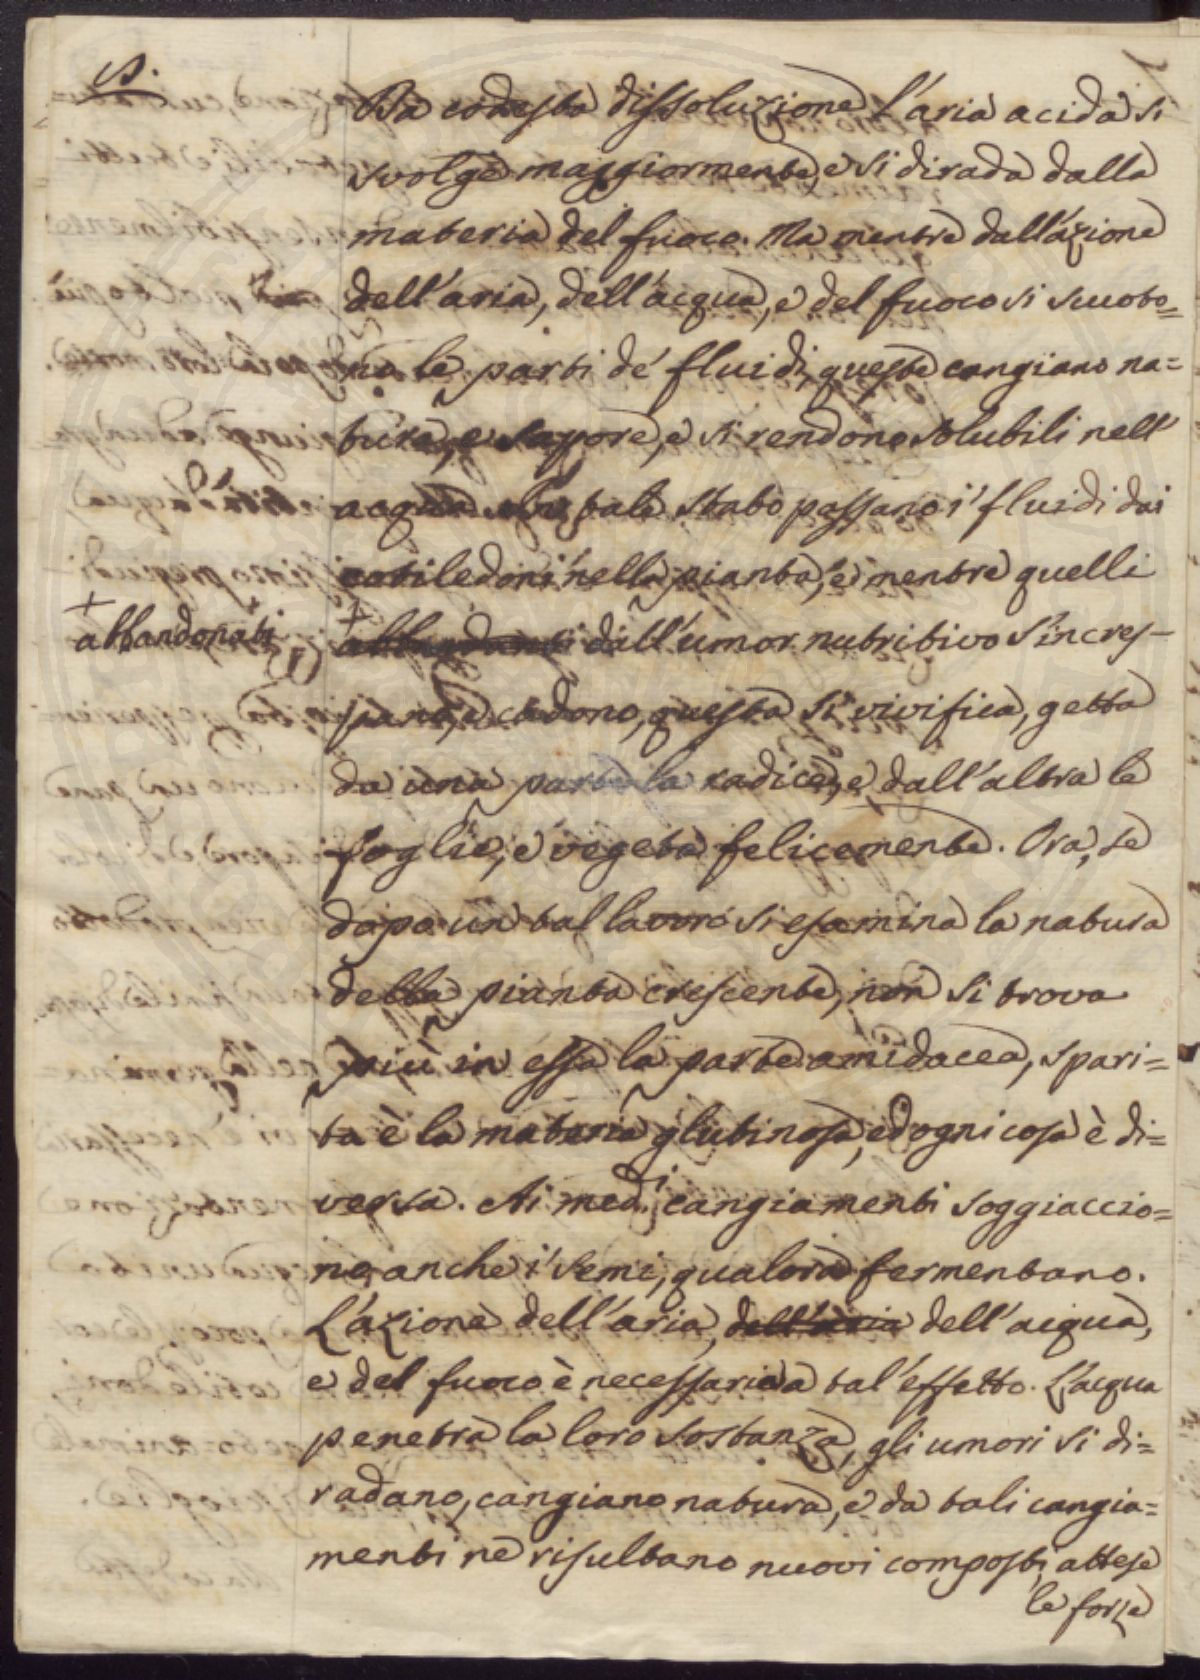 Da codesta dissoluzione l'aria acida si
svolge maggiormente, e si dirada dalla
materia del fuoco. Ma mentre dall'azione
dell'aria, dell'acqua, e del fuoco si scuoto=
no le parti de' fluidi, queste cangiano na=
tura, e sapore, e si rendono solubili nell'
acqua. In tale stato passano i' fluidi dai
cotiledoni nella pianta, e mentre quelli
+
abbandonati
+ dall'umor nutritivo s'incres-
pano, e cadono, questa si vivifica, getta
da una parte la radice, e dall'altra le
foglie, e vegeta felicemente. Ora, se
dopo un tal lavoro si esamina la natura
della pianta crescente, non si trova
più in essa la parte amidacea, spari=
ta è la materia glutinosa, ed ogni cosa è di=
versa. Ai med.i cangiamenti soggiaccio=
no anche i' semi, qualora fermentano.
L'azione dell'aria, dell'aria dell'acqua,
e del fuoco è necessaria a tal'effetto. L'acqua
penetra la loro sostanza, gli umori si di=
radano, cangiano natura, e da tali cangia=
menti ne risultano nuovi composti, attese
le forze